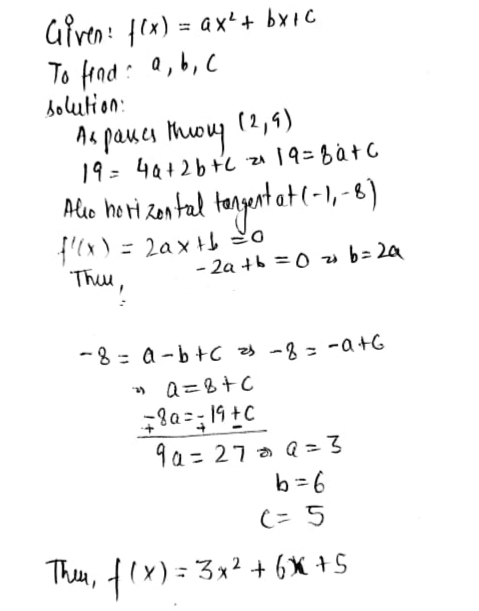 Given: f(x) = ax² + bx+c
To find: a, b, c
solution:
As passes throuy (2,9)
19 = 4a+2b+c ⇒ 19=8a+c
Also horizontal tangent at (-1,-8)
f'(x) = 2ax+b =0
Thus, -2a+b =0 ⇒ b=2a
-8 = a-b+c ⇒ -8 = -a+c
⇒ a=8+c
-8a=-19+c
+ + -
9a = 27 ⇒ a=3
b=6
c= 5
Thus, f(x) = 3x² + 6x +5